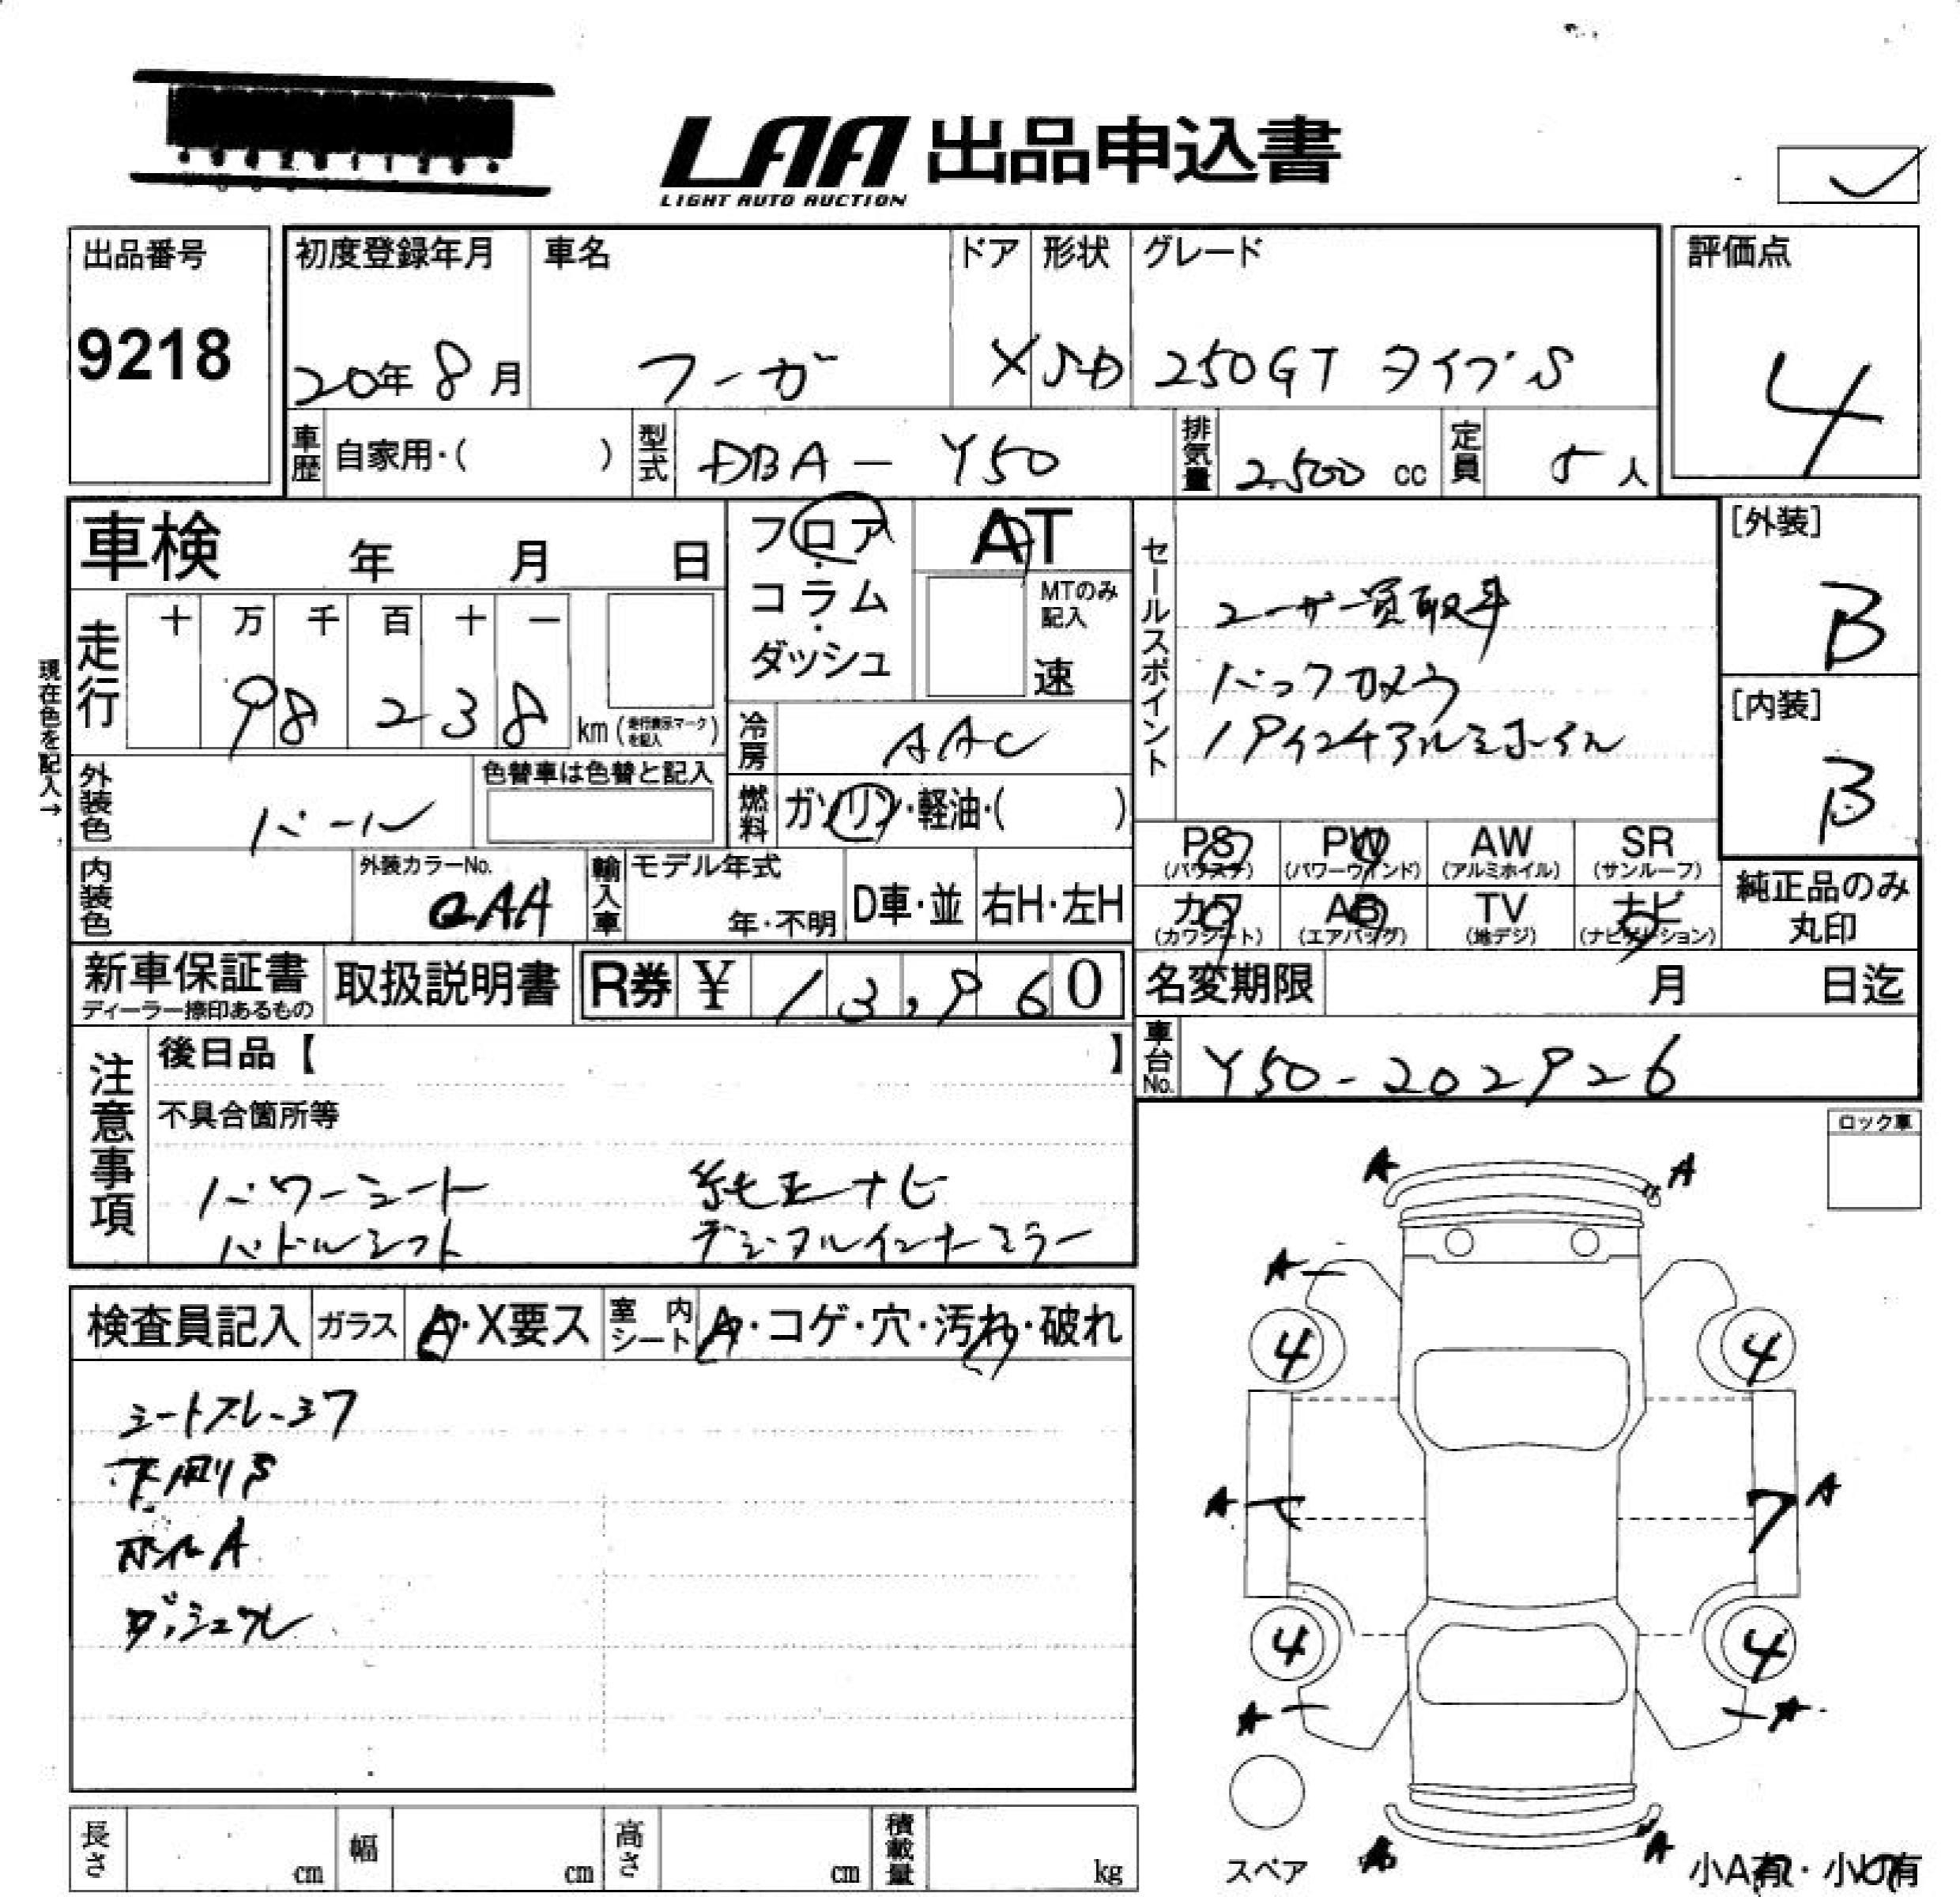 LAA 出品申込書
LIGHT AUTO AUCTION
出品番号
9218
初度登録年月
20年 8月
車名
フーガ
ドア
X
形状
SD
グレード
250GT タイプS
評価点
4
車歴 自家用・( )
型式 DBA - Y50
排気量 2.500 cc
定員 5人
車検 年 月 日
走行
十 万 千 百 十 一
98238 km (走行表示マークを記入)
現在色を記入→
フロア・コラム・ダッシュ
AT
MTのみ記入
速
セールスポイント
ユーザー買取車
バックカメラ
19インチアルミホイル
[外装]
B
[内装]
B
冷房 AAC
燃料 ガソリン・軽油・( )
外装色 パール
色替車は色替と記入
内装色
外装カラーNo.
QAA
輸入車
モデル年式
年・不明
D車・並
右H・左H
PS (パワステ)
PW (パワーウィンド)
AW (アルミホイル)
SR (サンルーフ)
カワ (カワシート)
AB (エアバッグ)
TV (地デジ)
ナビ (ナビゲーション)
純正品のみ丸印
新車保証書
ディーラー捺印あるもの
取扱説明書
R券 ¥ 13,960
名変期限 月 日迄
車台No. Y50-202926
注意事項
後日品【 】
不具合箇所等
パワーシート 純正ナビ
パドルシフト デジタルインナーミラー
ロック車
検査員記入
ガラス A・X要ス
室内シート A・コゲ・穴・汚れ・破れ
シートスレ・シワ
下廻りS
ホイルA
A A
A
4 4
A A
4 4
A A
A A
スペア
小A有・小U有
長さ cm
幅 cm
高さ cm
積載量 kg